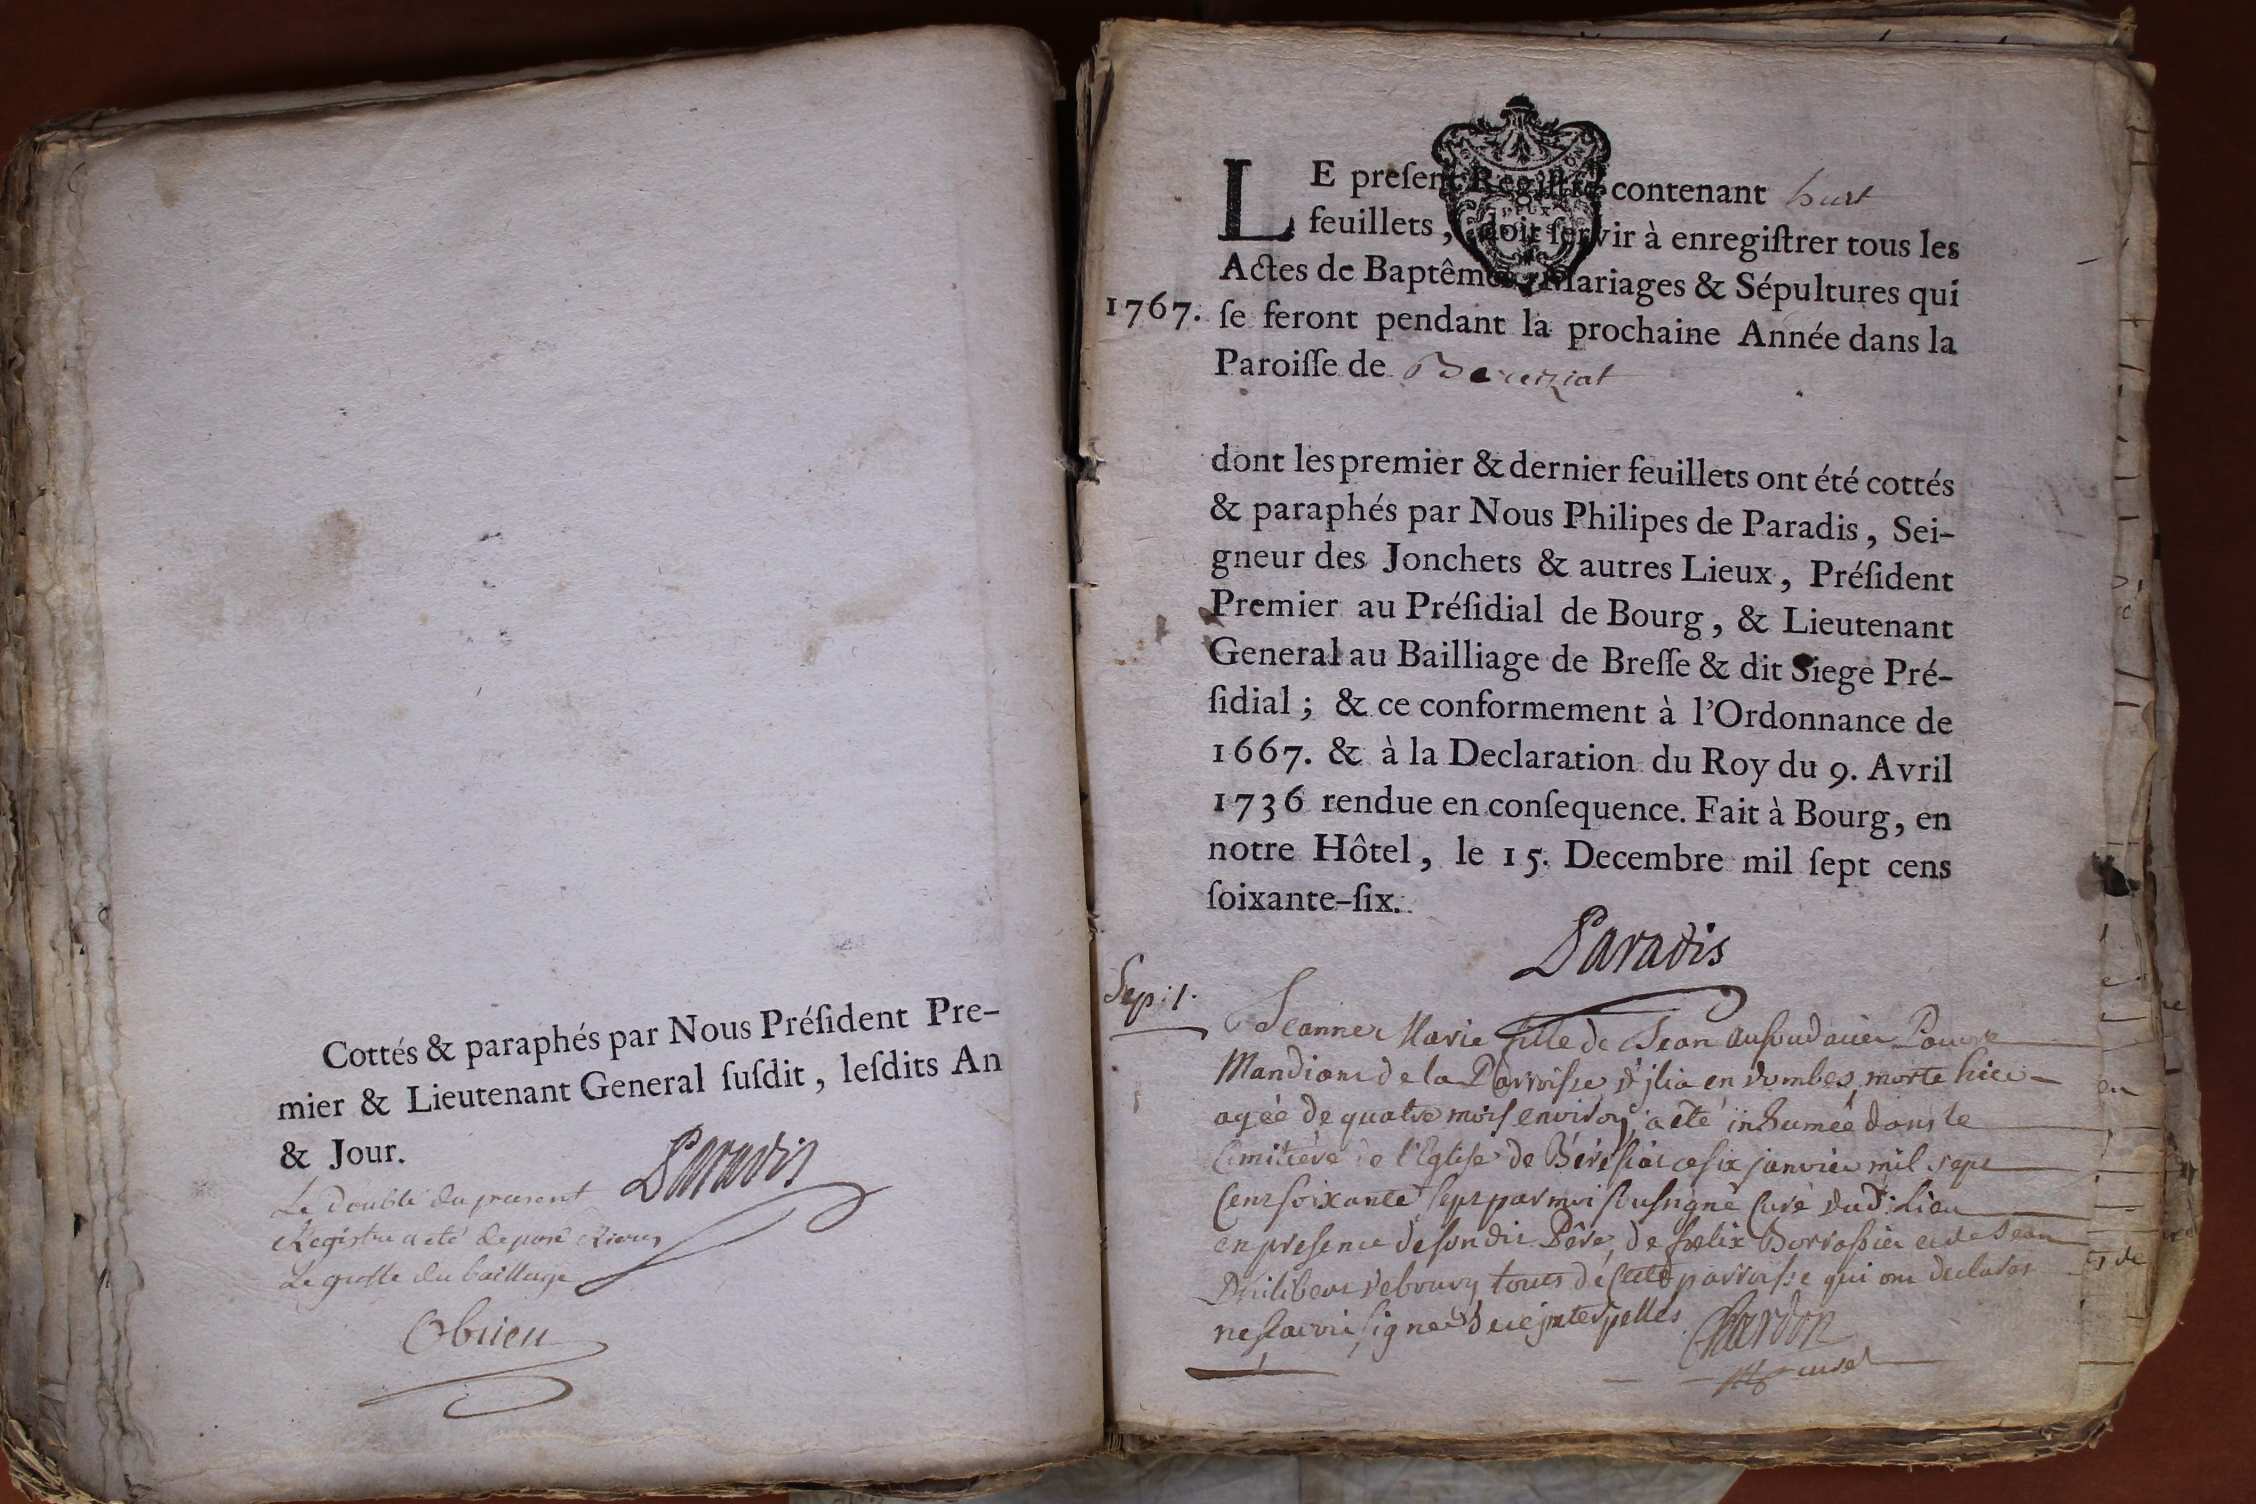 Cottés & paraphés par Nous Préſident Pre-
mier & Lieutenant General ſuſdit, leſdits An
& Jour.
Paradis
Le double du present
Registre a eté deposé Riere
Le greffe du bailliage
Obrieu
LE preſent Regiſtre contenant huit
feuillets, doit ſervir à enregiſtrer tous les
Actes de Baptêmes, Mariages & Sépultures qui
1767. ſe feront pendant la prochaine Année dans la
Paroiſſe de Bereiziat
dont les premier & dernier feuillets ont été cottés
& paraphés par Nous Philipes de Paradis, Sei-
gneur des Jonchets & autres Lieux, Préſident
Premier au Préſidial de Bourg, & Lieutenant
General au Bailliage de Breſſe & dit Siege Pré-
ſidial; & ce conformement à l'Ordonnance de
1667. & à la Declaration du Roy du 9. Avril
1736 rendue en conſequence. Fait à Bourg, en
notre Hôtel, le 15. Decembre mil ſept cens
ſoixante-ſix.
Paradis
Sep: 1.
Jeanne Marie fille de Jean Pauvre
Mandiant de la Parroisse d'jlia en dombes, morte hier
agée de quatre mois environ, a été inhumée dans le
Cimitiere de l'Eglise de Bérésiat ce six janvier mil sept
Cent soixante sept par moi soussigné Curé dud: Lieu
en presence de son dit Père, de fœlix Borrassier et de Jean
Philibert debourg tous de cette parroisse qui ont declarés
ne sçavoir signer de ce jnterpellés. Chardon
curé